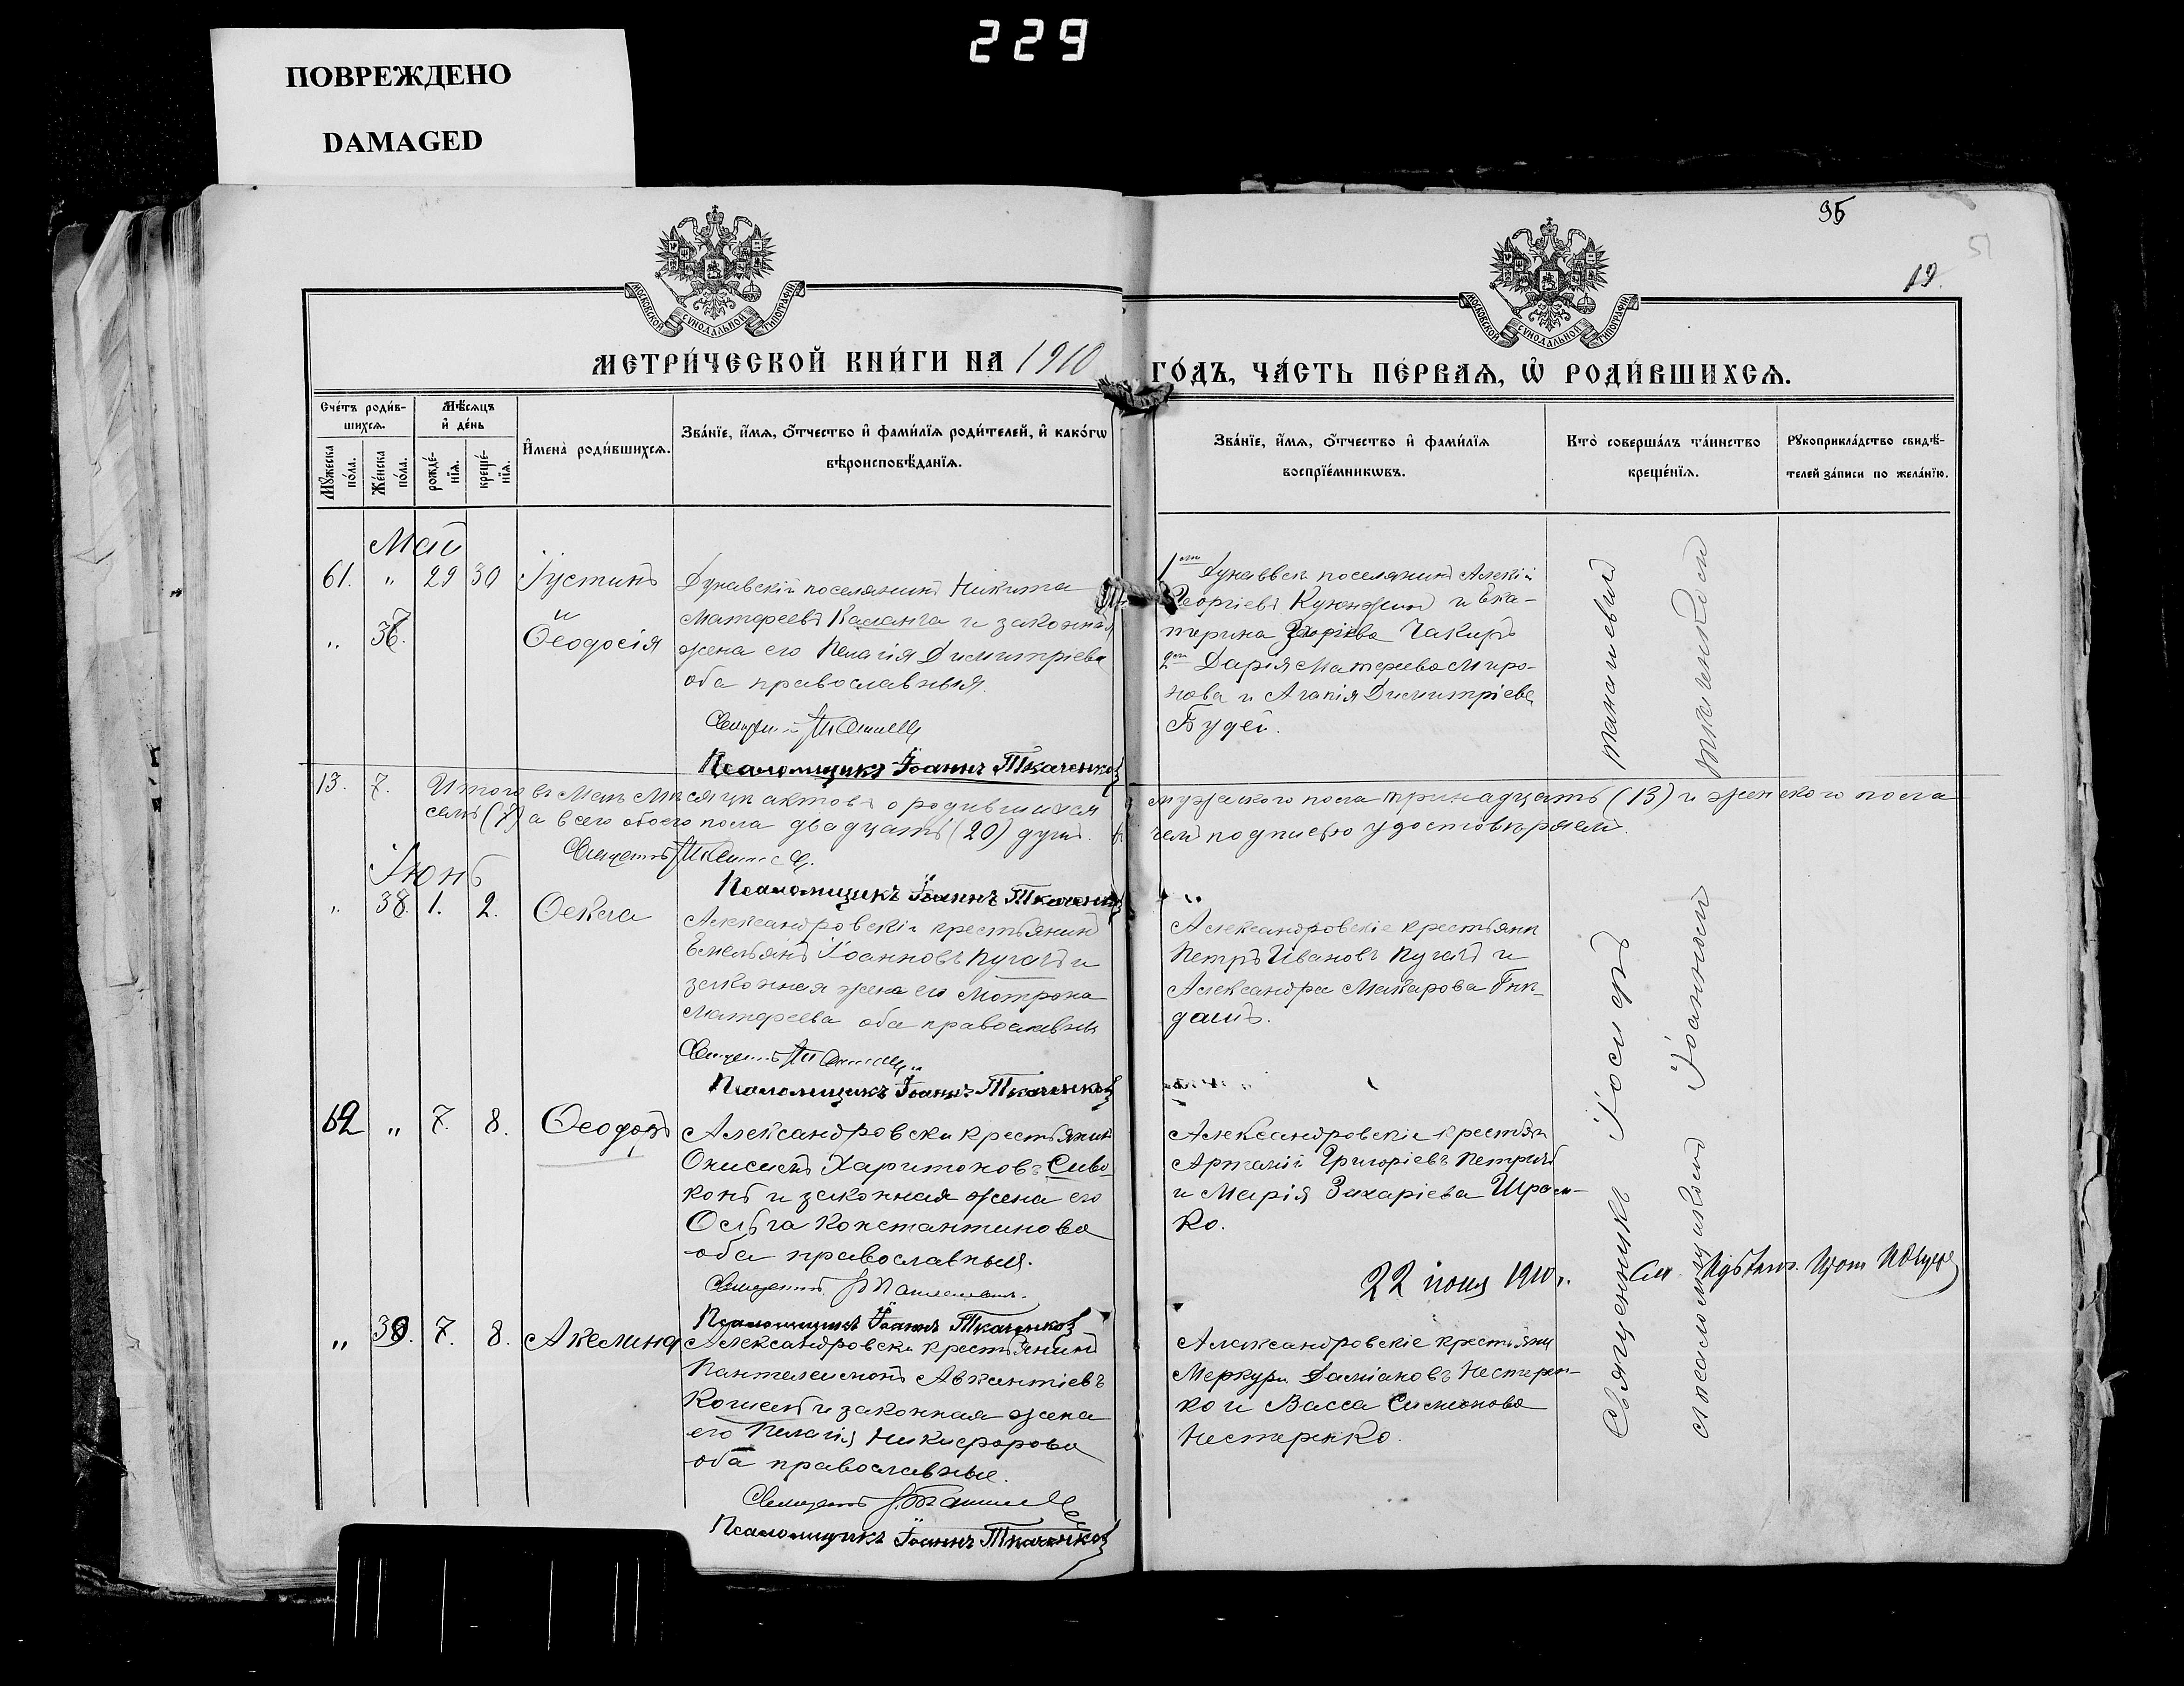 229
ПОВРЕЖДЕНО
DAMAGED
95
51
19.
МОСКОВСКОЙ СѴНОДАЛЬНОЙ ТИПОГРАФІИ
МОСКОВСКОЙ СѴНОДАЛЬНОЙ ТИПОГРАФІИ
МЕТРИ́ЧЕСКОЙ КНИ́ГИ НА 1910
ГО́ДЪ, ЧА́СТЬ ПЕ́РВАѦ, Ѽ РОДИ́ВШИХСѦ.
Сче́тъ роди́вшихсѧ.
Мꙋ́жеска по́ла.
Же́нска по́ла.
Мѣ́сѧцъ и҆ де́нь
рожде́нїѧ.
креще́нїѧ.
И҆мена̀ роди́вшихсѧ.
Зва́нїе, и҆́мѧ, ѻ҆́тчество и҆ фами́лїѧ роди́телей, и҆ како́гѡ
вѣроисповѣ́данїѧ.
Зва́нїе, и҆́мѧ, ѻ҆́тчество и҆ фами́лїѧ
воспрїе́мникѡвъ.
Кто̀ соверша́лъ та́инство
креще́нїѧ.
Рꙋкоприкла́дство свидѣ́-
телей за́писи по жела́нїю.
Май
61. " 29 30 Іустинъ
и
" 37. Ѳеодосія
Дунавскій поселянинъ Никита
Матфеевъ Каланча и законная
жена его Пелагія Димитріева
оба православныя.
Псаломщикъ Іоаннъ Ткаченко
1ой Дунавск поселянинъ Алексій
Георгіевъ Куюнжи и Ека-
терина Чакиръ
2ой Дарія Матфеева Миро-
нова и Агапія Димитріева
Будей.
13. 7. Итого въ Маѣ мѣсяцѣ актовъ о родившихся
мужескаго пола тринадцать (13) и женскаго пола
семь (7) а всего обоего пола двадцать (20) душъ.
чемъ подписью удостовѣряемъ.
Псаломщикъ Іоаннъ Ткаченко
Іюнь
" 38. 1. 2. Ѳекла
Александровскій крестьянинъ
Емельянъ Іоанновъ Пугачъ и
законная жена его Мотрона
Матфеева оба православны
Псаломщикъ Іоаннъ Ткаченко
Александровскіе крестьяни
Петръ Ивановъ Пугачъ и
Александра Макарова Гнѣ-
дашъ.
62 " 7. 8. Ѳеодоръ
Александровски крестьянинъ
Онисимъ Харитоновъ Сиво-
конь и законная жена его
Ольга Константинова
оба православныя.
Псаломщикъ Іоаннъ Ткаченко
Александровскіе крестьян
Артемій Григоріевъ Петричъ
и Марія Захаріева Шрам-
ко.
22 іюня 1910 г.
" 39. 7. 8. Акелина
Александровски крестьянинъ
Пантелеимонъ Авксентіевъ
Кошель и законная жена
его Пелагія Никифорова
оба православные.
Псаломщикъ Іоаннъ Ткаченко
Александровскіе крестьяни
Меркури Даміановъ Нестерен-
ко и Васса Симонова
Нестеренко.
Священникъ Іосифъ
съ псаломщикомъ Іоанномъ Ткаченкомъ